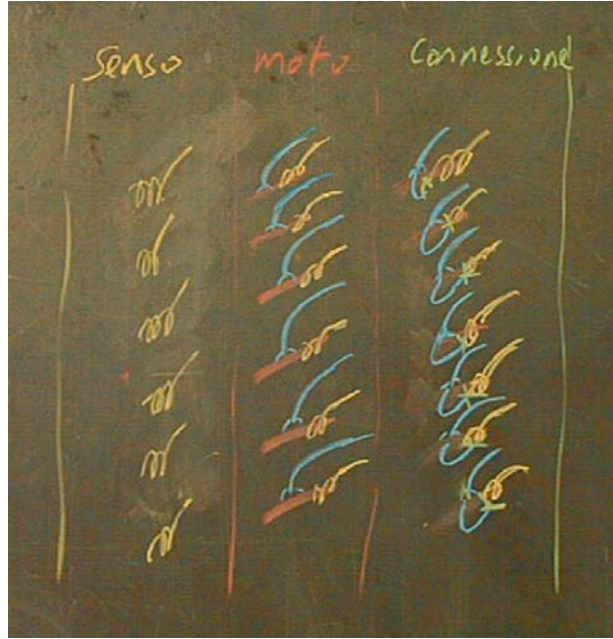 senso moto Connessione